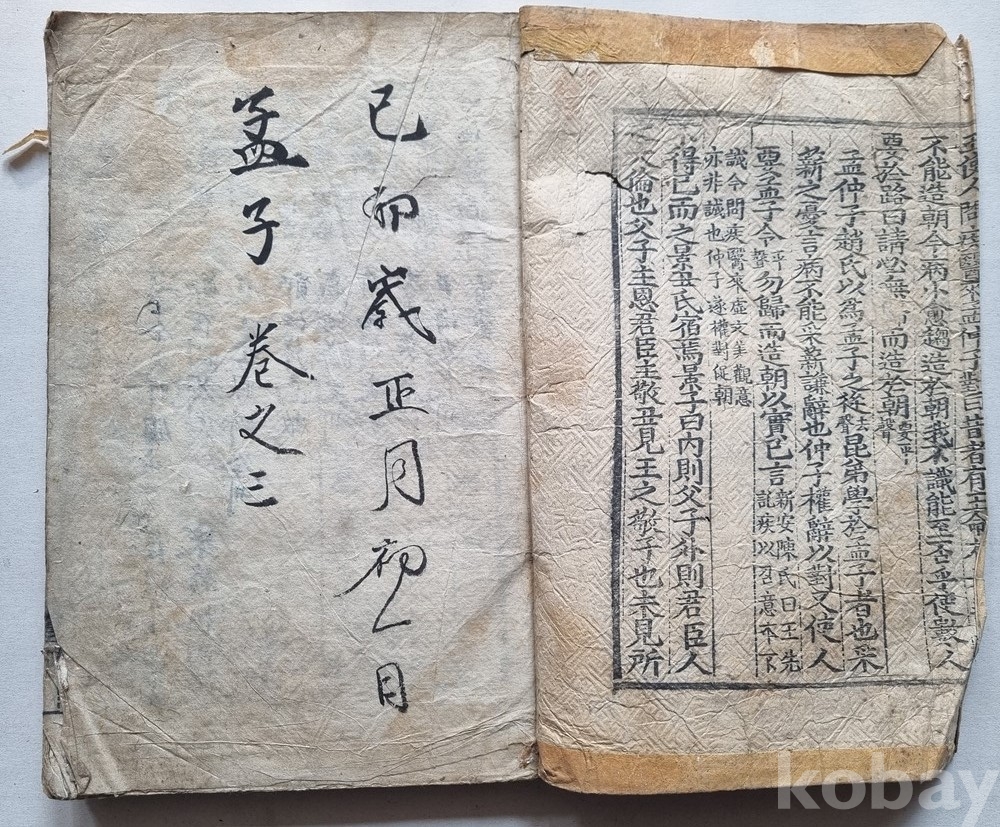 使人問疾醫來孟仲子對曰昔者有王命
不能造朝今病小愈趨造於朝我不識能至否乎使數人
要於路曰請必無 而造於朝 要平聲
孟仲子趙氏以爲孟子之從去聲昆弟學於孟子者也采
薪之憂言病不能采薪謙辭也仲子權辭以對又使人
要孟子令平聲勿歸而造朝以實已言 新安陳氏曰王先託疾以召意不下
誠今問疾醫來虛文美觀意亦非誠也仲子遂權對促朝
得已而之景丑氏宿焉景子曰內則父子外則君臣人
倫也父子主恩君臣主敬丑見王之敬子也未見所
己卯歲正月初一日
孟子 卷之三
kobay